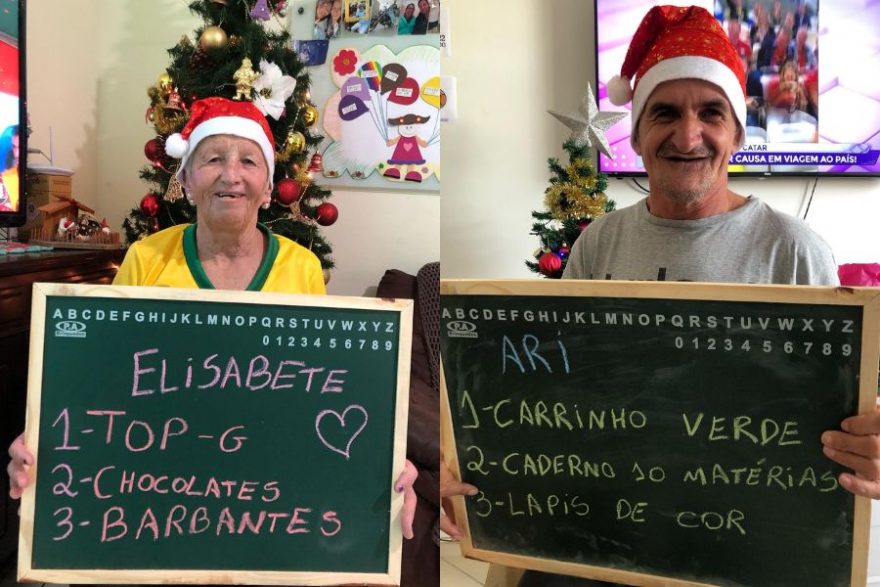 ABCDEFGHIJKLMNOPQRSTUVWXYZ
0123456789
P.A
ELISABETE
1-TOP-G
2-CHOCOLATES
3-BARBANTES
CATAR
CAUSA EM VIAGEM AO PAÍS!
ABCDEFGHIJKLMNOPQRSTUVWXYZ
0123456789
P.A
ARi
1-CARRINHO VERDE
2-CADERNO 10 MATÉRIAS
3-LAPIS DE COR